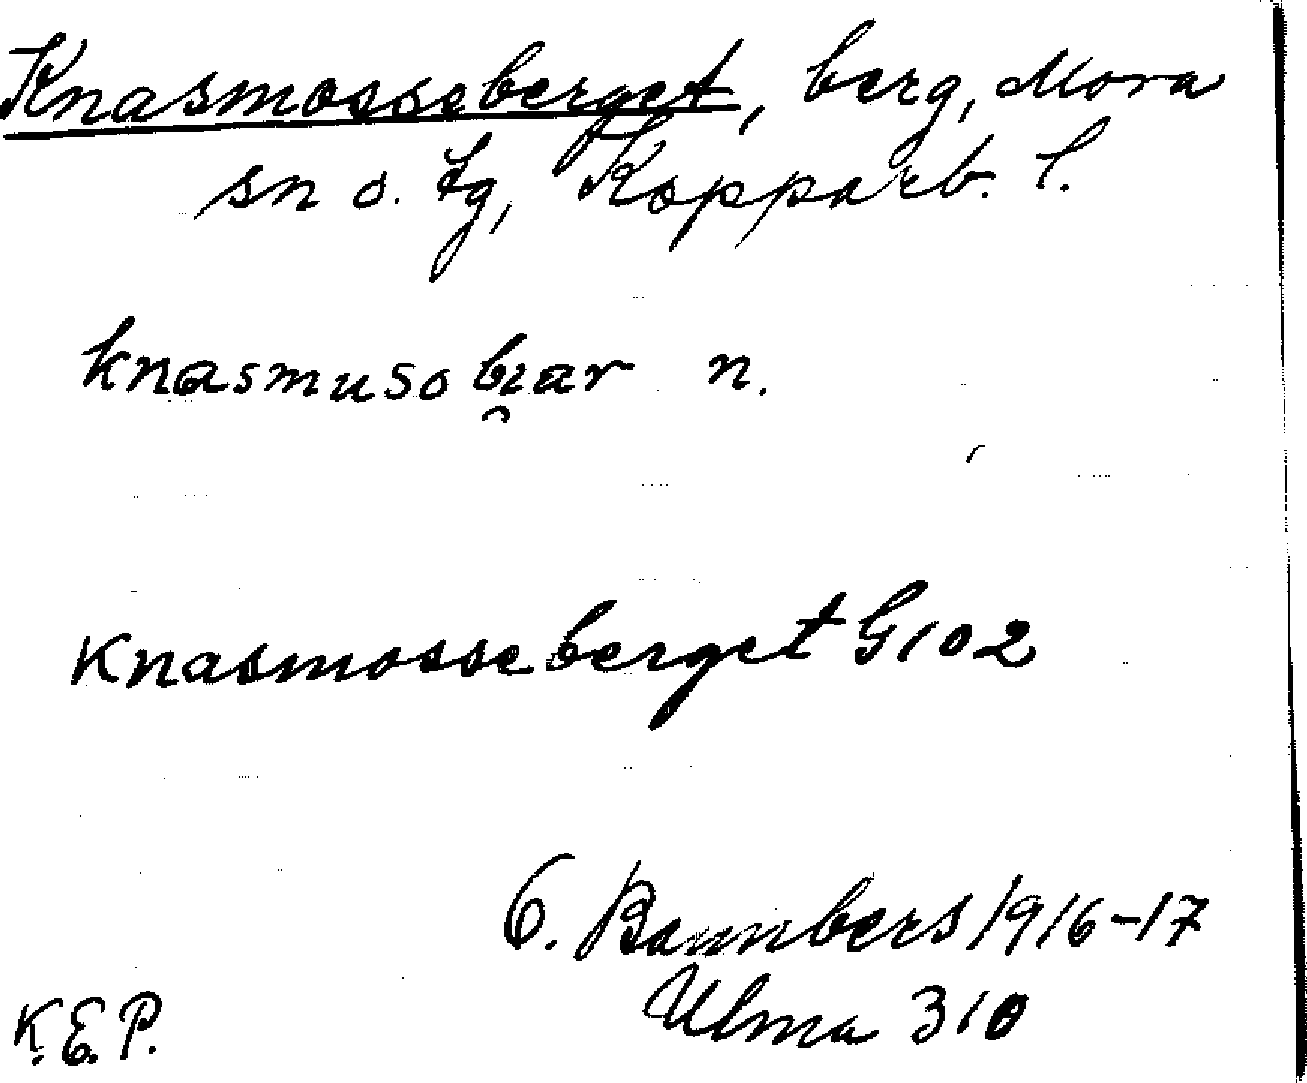 Knasmosseberget, berg, Mora
sn o. tg, Kopparb. l.
knasmusobi̯ar n.
Knasmosseberget G 102
O. Bannbers 1916-17
Ulma 310
K.E.P.